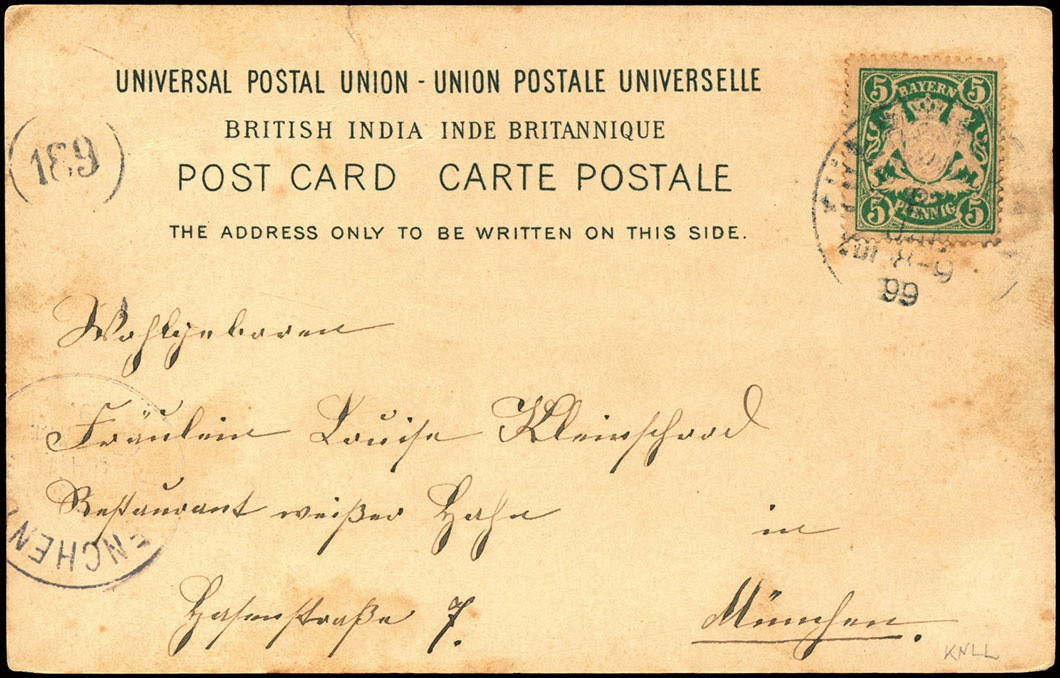 UNIVERSAL POSTAL UNION - UNION POSTALE UNIVERSELLE
BRITISH INDIA INDE BRITANNIQUE
POST CARD CARTE POSTALE
THE ADDRESS ONLY TO BE WRITTEN ON THIS SIDE.
189
5 BAYERN 5
5 PFENNIG 5
8-9
99
Wohlgeboren
Fräulein Louise Kleinschrod
Restaurant weißer Hahn
in
ENCHEN
Hasenstraße 7.
München.
KNLL